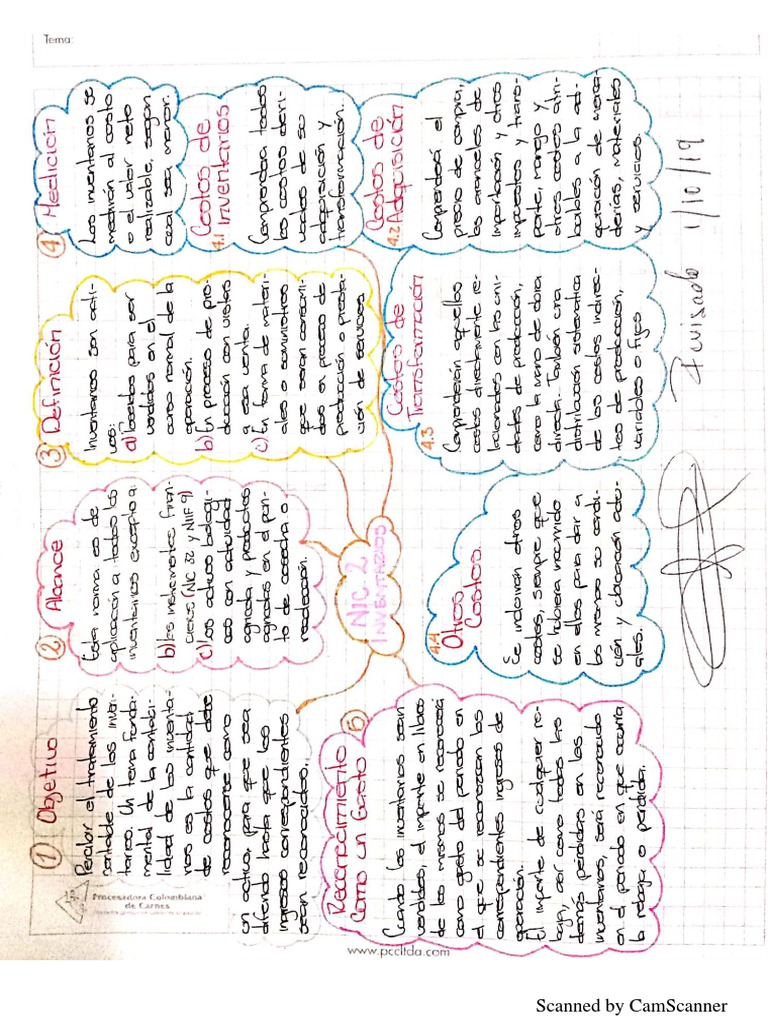 Tema:
① Objetivo
Percalar el tratamiento
contable de los inven-
tarios. Un tema funda-
mental de la contabi-
lidad de los inventa-
rios es la cantidad
de costos que debe
reconocerse como
un activo, para que sea
diferido hasta que los
ingresos correspondientes
sean reconocidos.
② Alcance
Esta norma es de
aplicación a todos los
inventarios excepto a:
b) los instrumentos finan-
cieros (NIC 32 y NIIF 9)
c) los activos biológi-
cos con actividad
agrícola y productos
agrícolas en el pun-
to de cosecha o
recolección.
③ Definición
Inventarios son acti-
vos:
a) poseidos para ser
vendidos en el
curso normal de la
operación.
b) En proceso de pro-
ducción con vistas
a esa venta.
c) En forma de materi-
ales o suministros
que serán consumi-
dos en proceso de
producción o presta-
ción de servicios
④ Medición
Los inventarios se
medirán al costo
o el valor neto
realizable, según
cual sea menor.
4.1 Costos de
Inventarios
Comprenderá todos
los costos deri-
vados de su
adquisición y
transformación.
4.2 Costos de
Adquisición
Comprenderá el
precio de compra,
los aranceles de
importación y otros
impuestos y trans-
porte, manejo y
otros costos atri-
buibles a la ad-
quisición de merca-
derías, materiales
y servicios.
4.3 Costos de
Transformación
Comprenderán aquellos
costos directamente re-
lacionados con las uni-
dades de producción,
como la mano de obra
directa. También una
distribución sistemática
de los costos indirec-
tos de producción,
variables o fijos
4.4 Otros
Costos.
Se incluirán otros
costos, siempre que
se hubiera incurrido
en ellos para dar a
los mismos su condi-
ción y ubicación actu-
ales.
NIC 2
INVENTARIOS
Reconocimiento ⑤
Como un Gasto
Cuando los inventarios sean
vendidos, el importe en libros
de los mismos se reconocerá
como gasto del periodo en
el que se reconozcan los
correspondientes ingresos de
operación.
El importe de cualquier re-
baja, así como todas las
demás pérdidas en los
inventarios, será reconocido
en el periodo en que ocurra
la rebaja o pérdida.
Revisado 1/10/19
Procesadora Colombiana
de Carnes
www.pccltda.com
Scanned by CamScanner